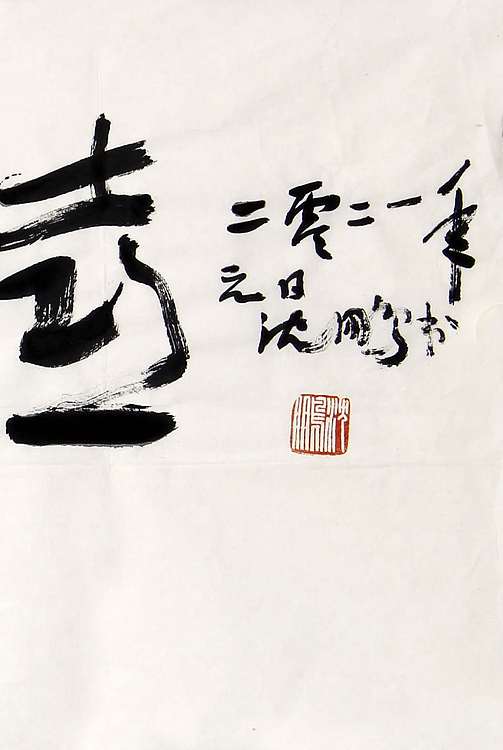 二零二一年
元日
沈鹏书
沈鹏